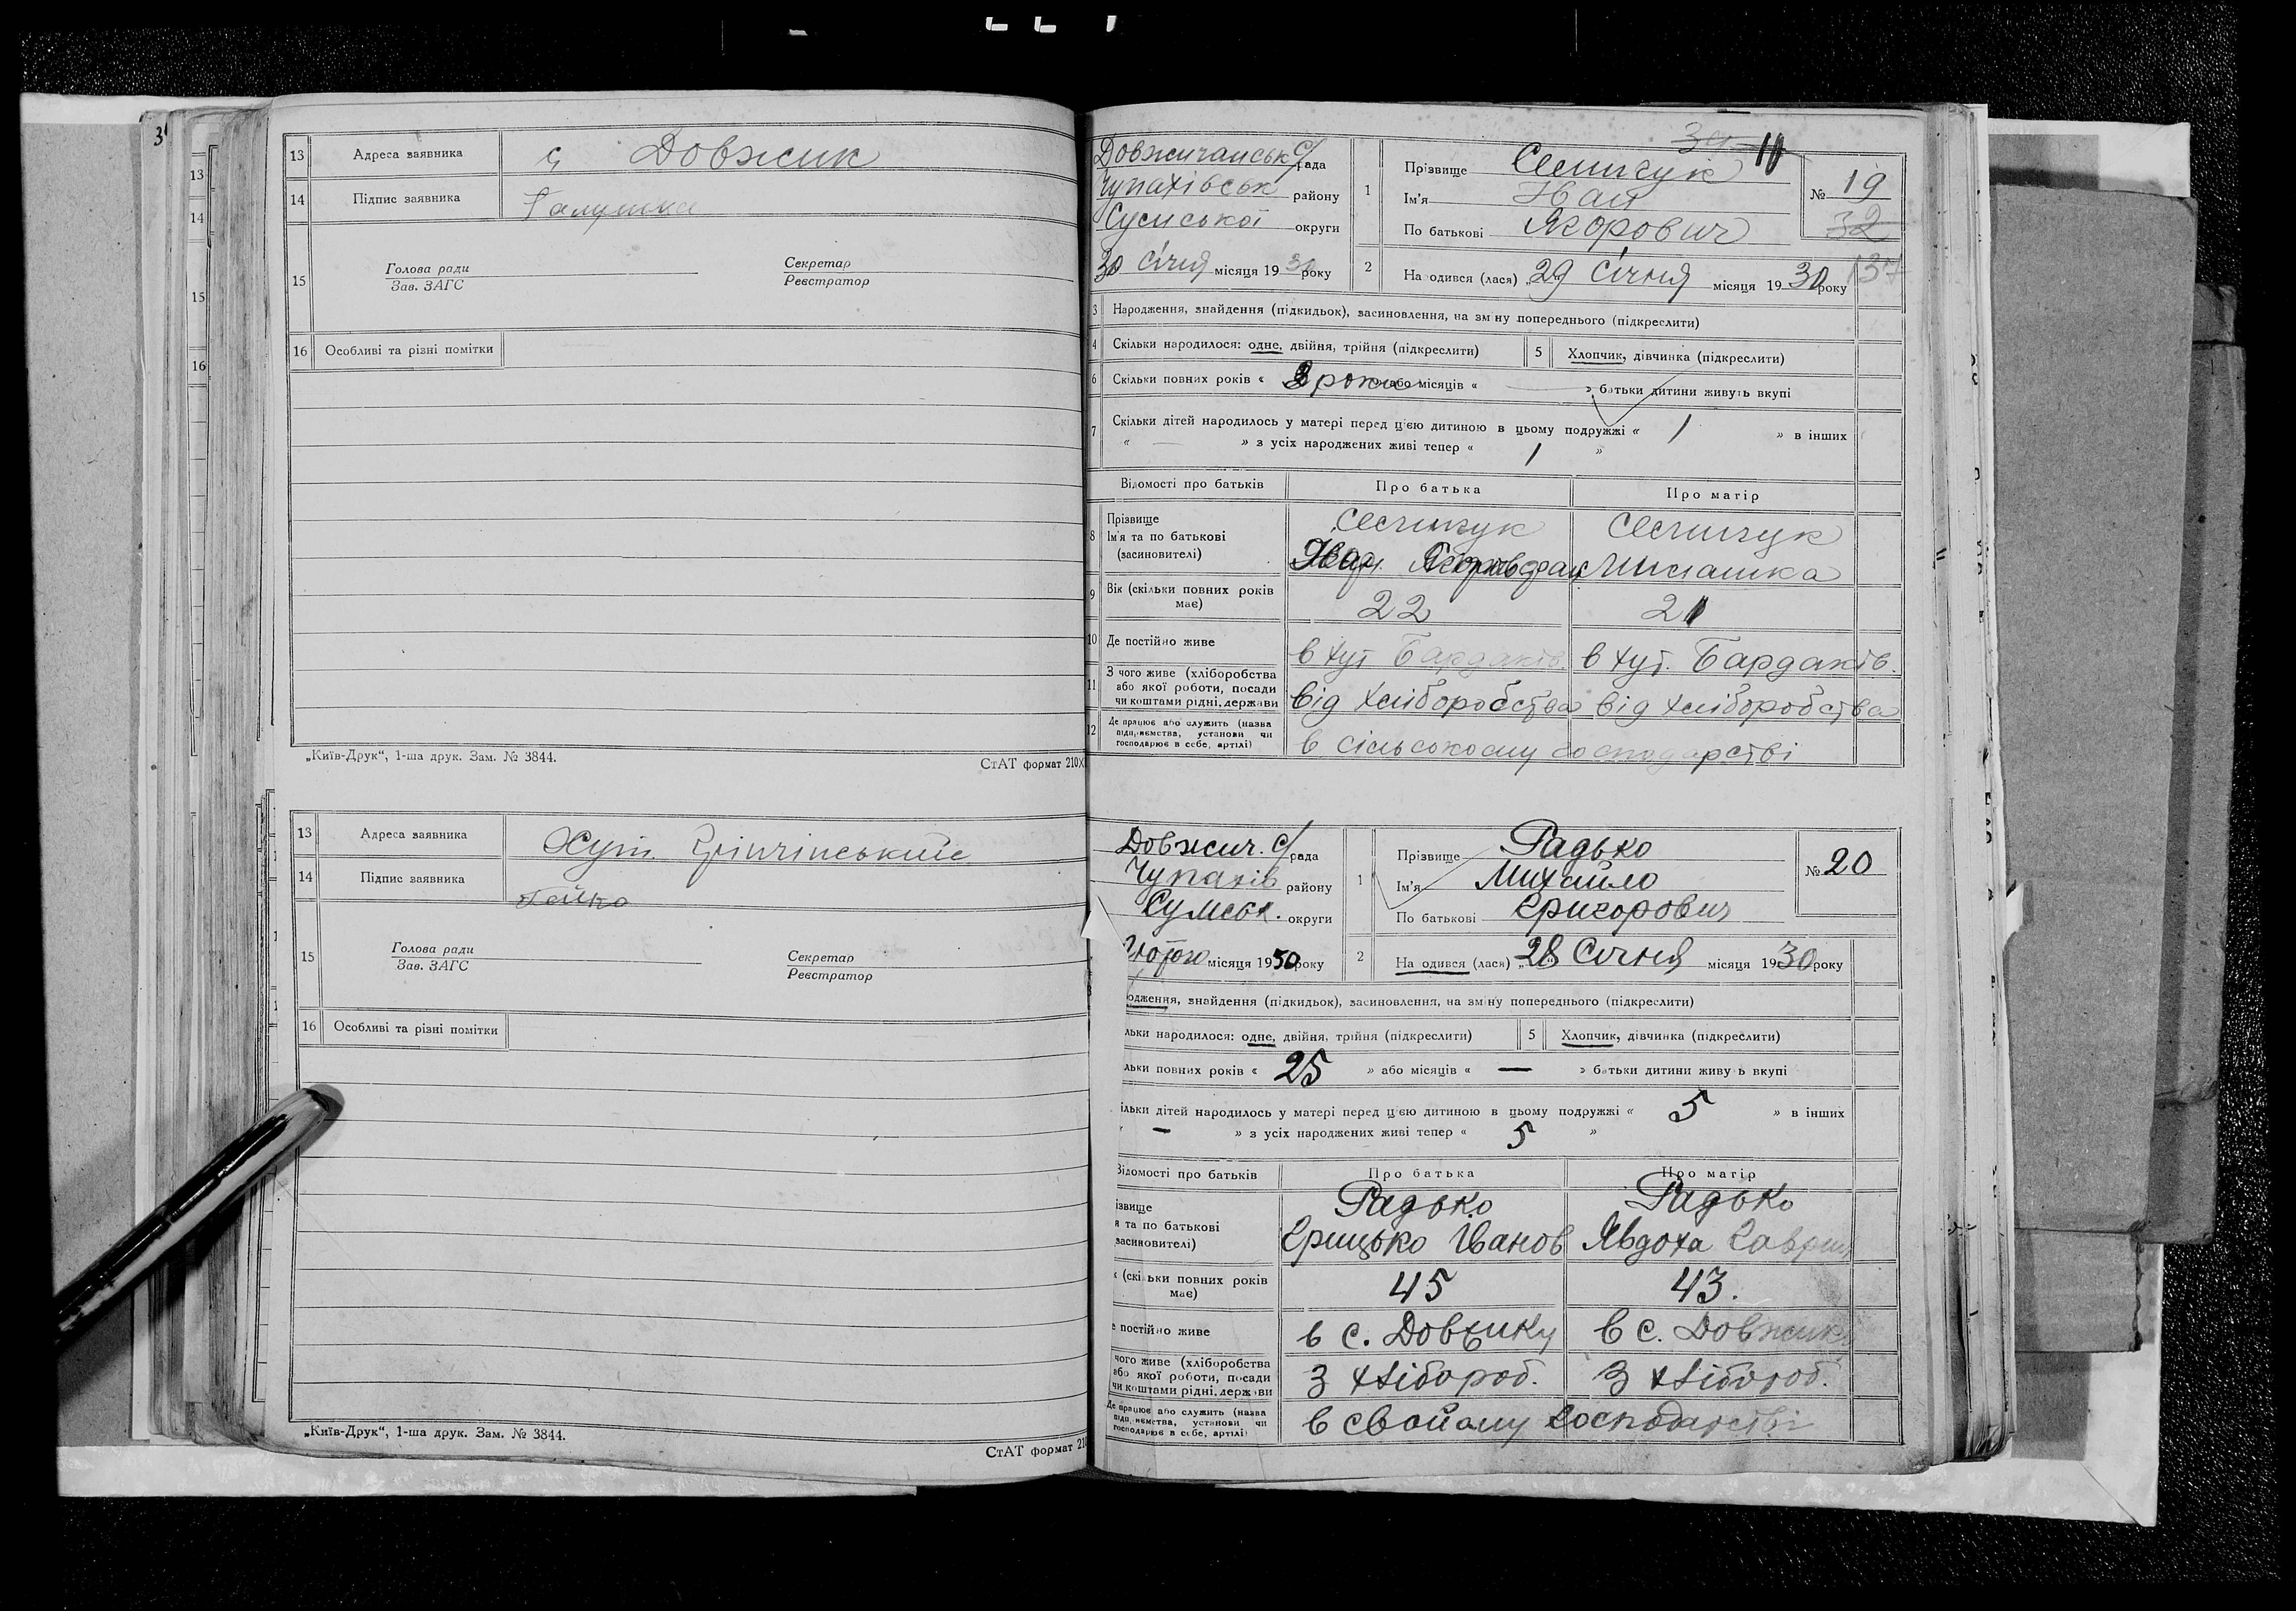 3
13
14
15
16
13 Адреса заявника с Довжик
14 Підпис заявника Галушка
15 Голова ради
Зав. ЗАГС
Секретар
Реєстратор
16 Особливі та різні помітки
„Київ-Друк“, 1-ша друк. Зам. № 3844.
СтАТ формат 210X
13 Адреса заявника Хут.
14 Підпис заявника
15 Голова ради
Зав. ЗАГС
Секретар
Реєстратор
16 Особливі та різні помітки
„Київ-Друк“, 1-ша друк. Зам. № 3844.
СтАТ формат 210
10
Довжичанськ с/рада
Чупахівськ району
Сумської округи
30 Січня місяця 1930 року
1 Прізвище
Ім'я Іван
По батькові Ягорович
№ 19
32
37
2 На одився (лася) „29 Січня місяця 1930 року
3 Народження, знайдення (підкидьок), засиновлення, на зміну попереднього (підкреслити)
4 Скільки народилося: одне, двійня, трійня (підкреслити) 5 Хлопчик, дівчинка (підкреслити)
6 Скільки повних років « роки » або місяців « — » батьки дитини живуть вкупі
7 Скільки дітей народилось у матері перед цією дитиною в цьому подружжі « 1 » в інших
« — » з усіх народжених живі тепер « 1 »
Відомості про батьків Про батька Про матір
8 Прізвище
Ім'я та по батькові Милашка
(засиновителі)
9 Вік (скільки повних років має) 22 21
10 Де постійно живе в хут Бардаків. в хут. Бардаків.
11 З чого живе (хліборобства або якої роботи, посади чи коштами рідні, держави від хліборобства від хліборобства
12 Де працює або служить (назва підприємства, установи чи господарює в себе, артілі) в сільському господарстві
Довжич. с/рада
Чупахів району
Сумськ. округи
Лютого місяця 1930 року
1 Прізвище Радько
Ім'я Михайло
По батькові Григорович
№ 20
2 На одився (лася) „28 Січня місяця 1930 року
одження, знайдення (підкидьок), засиновлення, на зміну попереднього (підкреслити)
льки народилося: одне, двійня, трійня (підкреслити) 5 Хлопчик, дівчинка (підкреслити)
льки повних років « 25 » або місяців « — » батьки дитини живуь вкупі
ільки дітей народилось у матері перед цією дитиною в цьому подружжі « 5 » в інших
« — » з усіх народжених живі тепер « 5 »
Відомості про батьків Про батька Про матір
ізвище Радько Радько
я та по батькові Грицько Іванов Явдоха Гаврил
засиновителі)
к (скільки повних років має) 45 43.
е постійно живе в с. Довжику в с. Довжику
чого живе (хліборобства або якої роботи, посади чи коштами рідні, держави З хлібороб. З хлібороб.
Де працює або служить (назва підприємства, установи чи господарює в себе, артілі) в свойому господарстві